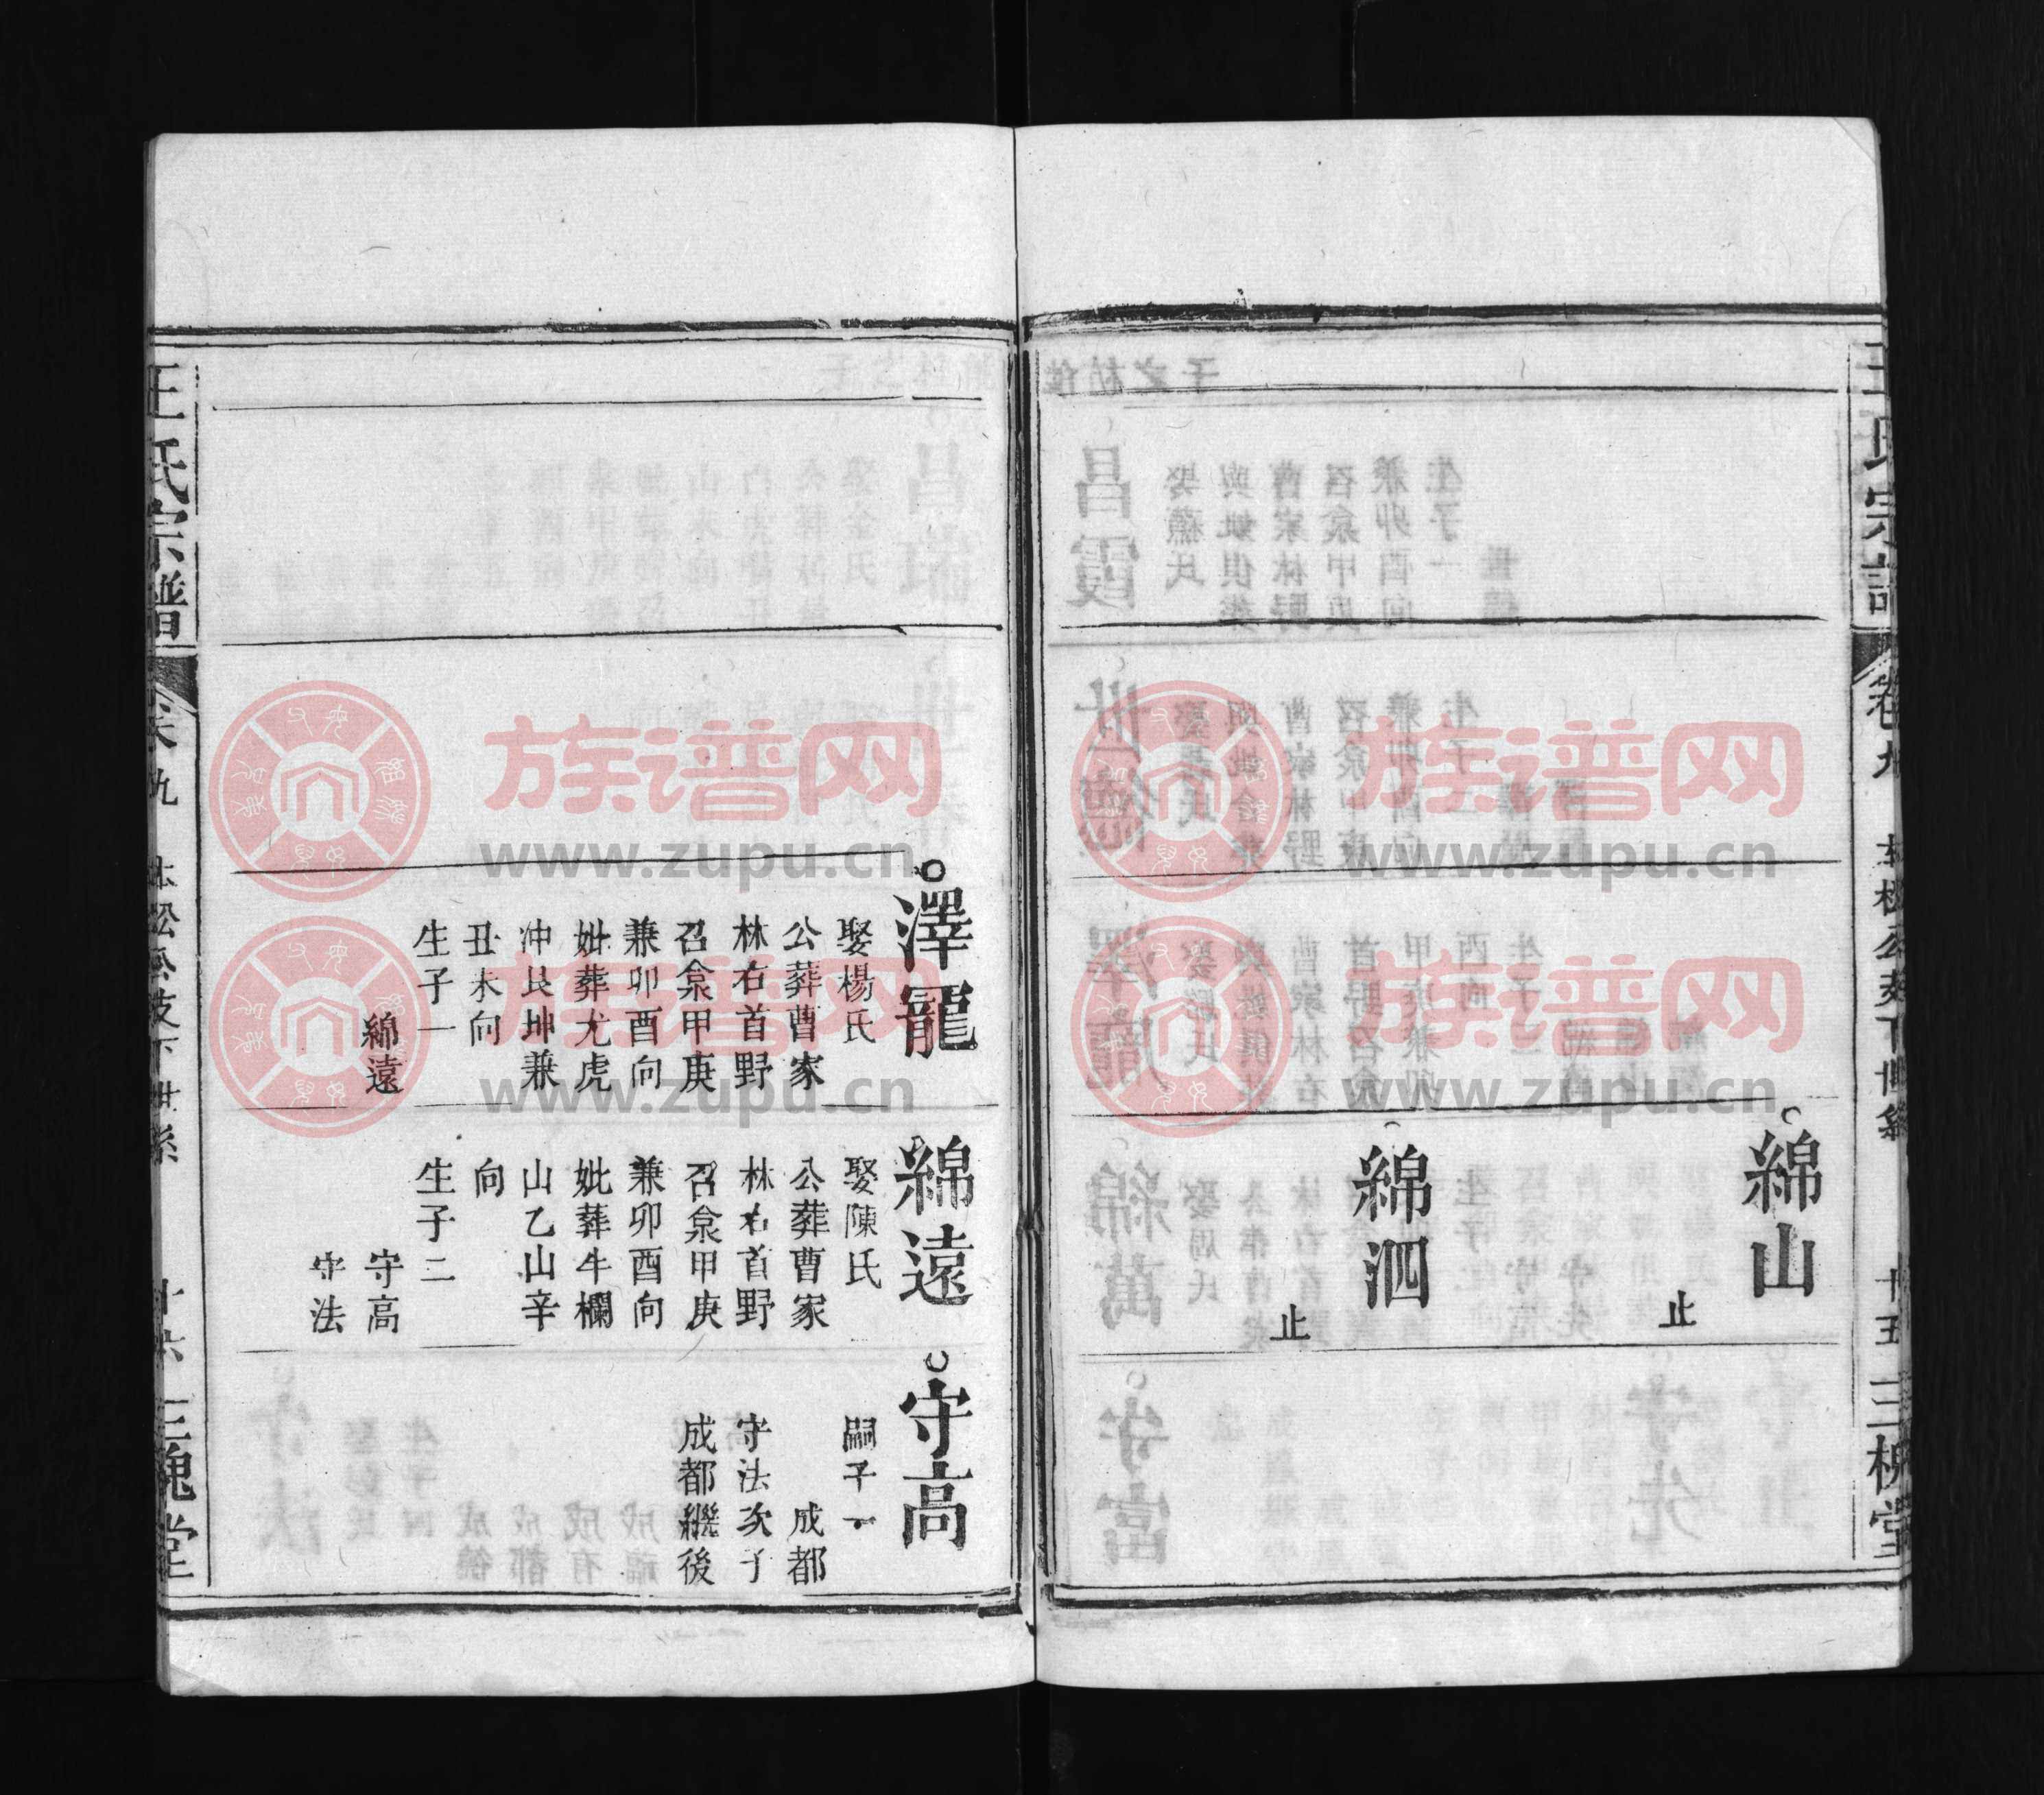 王氏宗譜
卷九
松公支下世系
十五
三槐堂
綿山
止
綿泗
止
澤寵
娶楊氏
公葬曹家
林右首野
召粂甲庚
兼卯酉向
妣葬尤虎
冲艮坤兼
丑未向
生子一
綿遠
綿遠
娶陳氏
公葬曹家
林右首野
召粂甲庚
兼卯酉向
妣葬牛欄
山乙山辛
向
生子二
守高
守法
守高
嗣子一
成都
守法次子
成都繼後
王氏宗譜
卷九
松公支下世系
十六
三槐堂
族谱网
www.zupu.cn
族谱网
www.zupu.cn
族谱网
www.zupu.cn
族谱网
www.zupu.cn